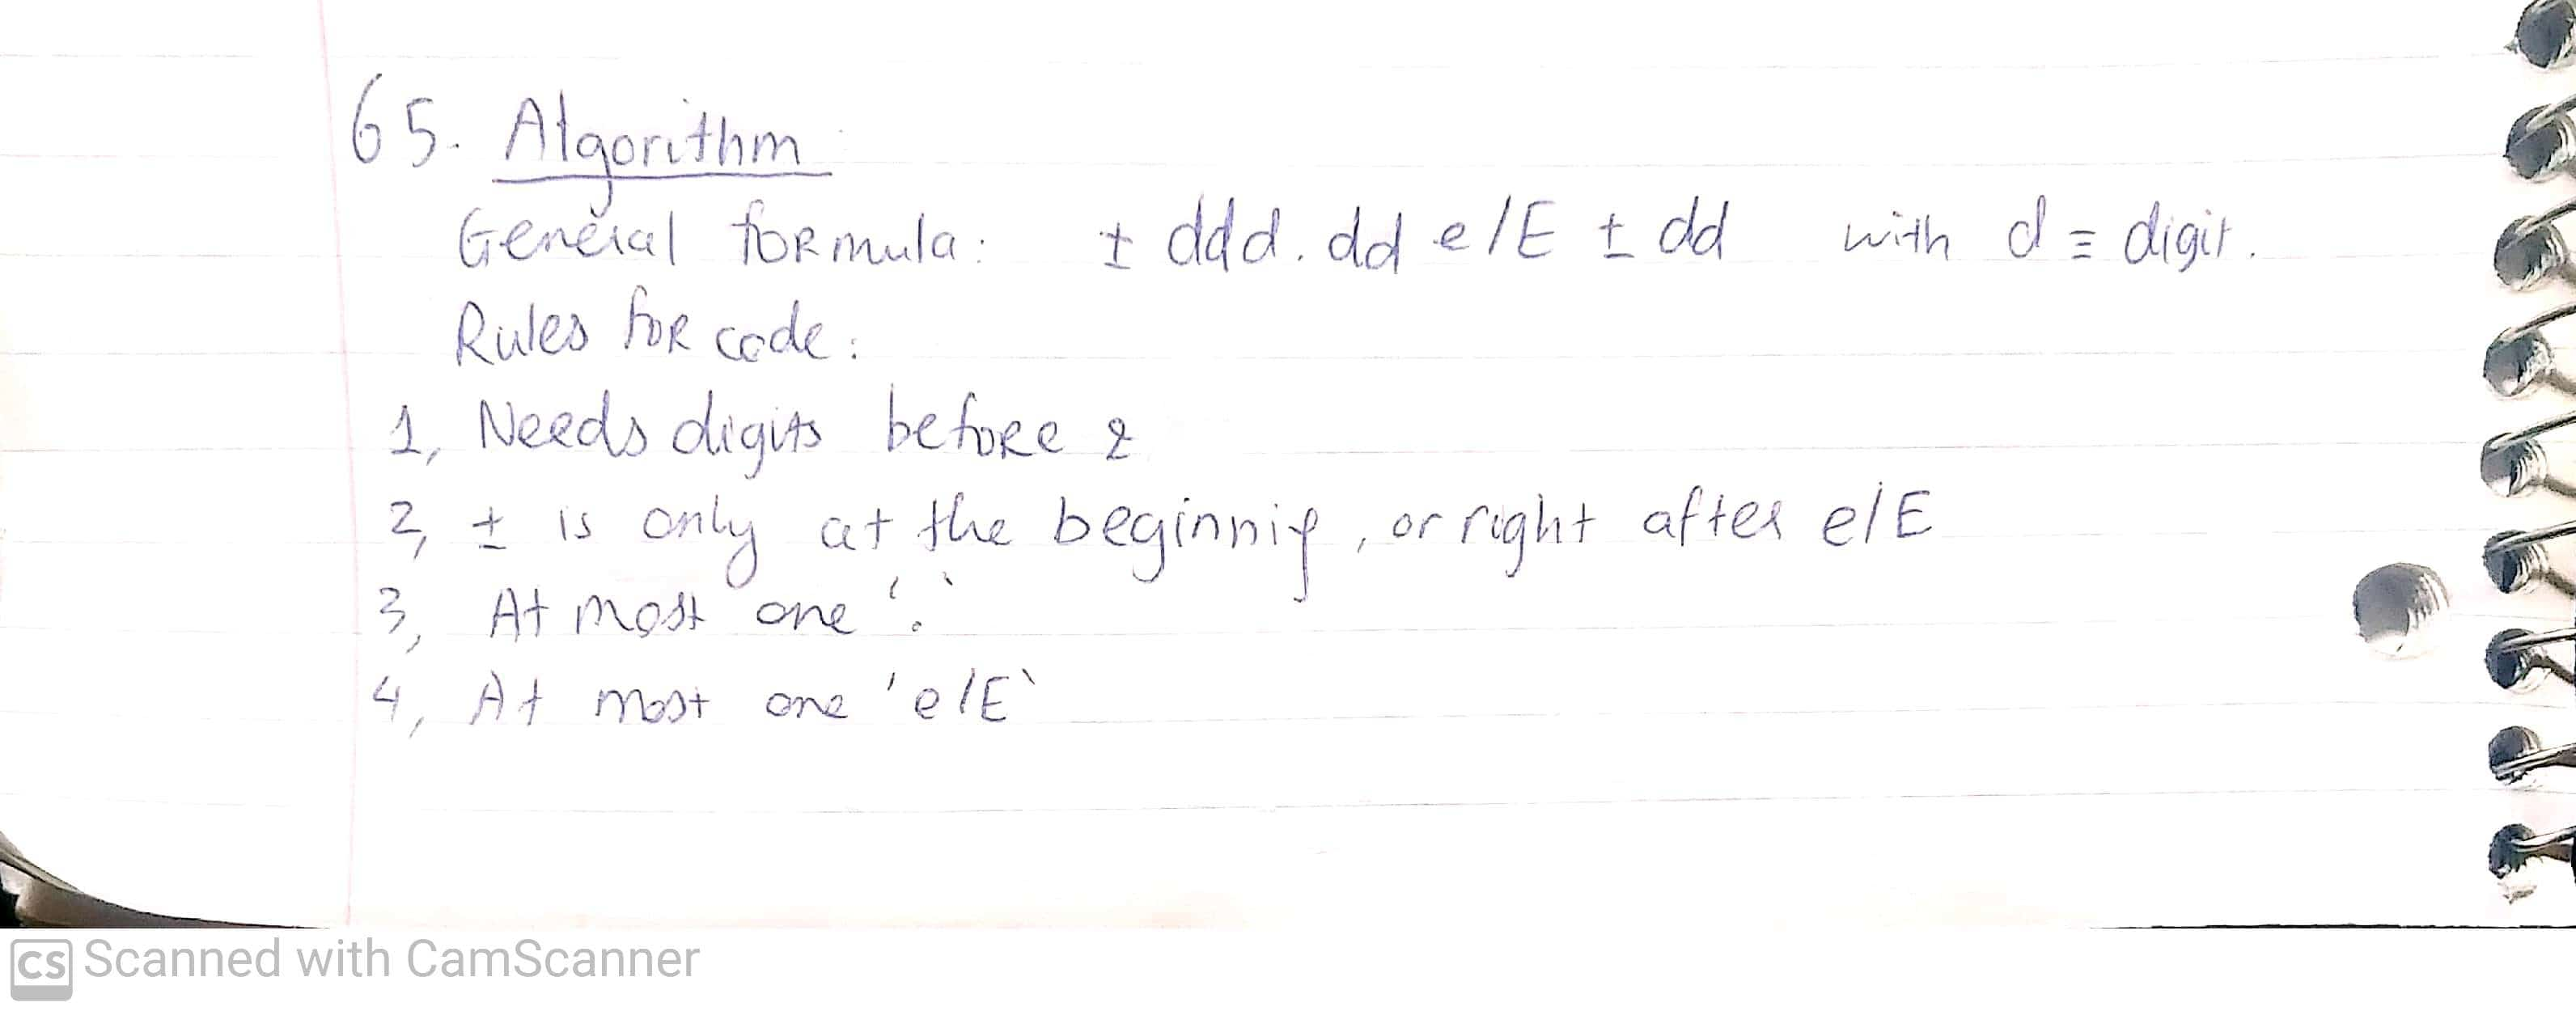 65. Algorithm
General formula: ± ddd.dd e/E ± dd with d ≡ digit.
Rules for code:
1, Needs digits before e
2, ± is only at the beginnig, or right after e/E
3, At most one '.'
4, At most one 'e/E'
CS Scanned with CamScanner